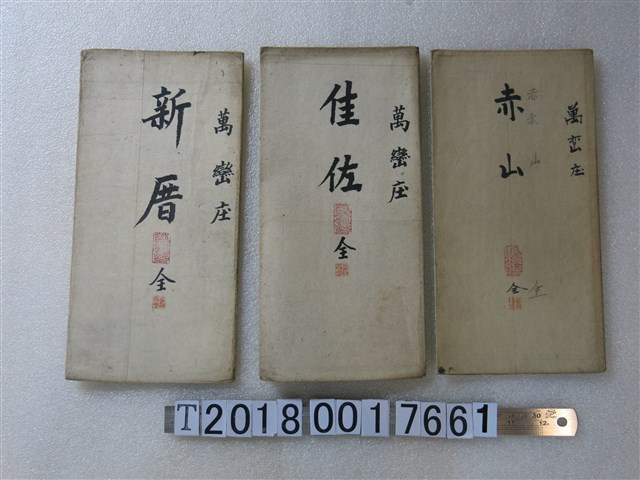 萬巒庄
新厝
全
萬巒庄
佳佐
全
萬巒庄
赤山
赤山
全
全
T20180017661